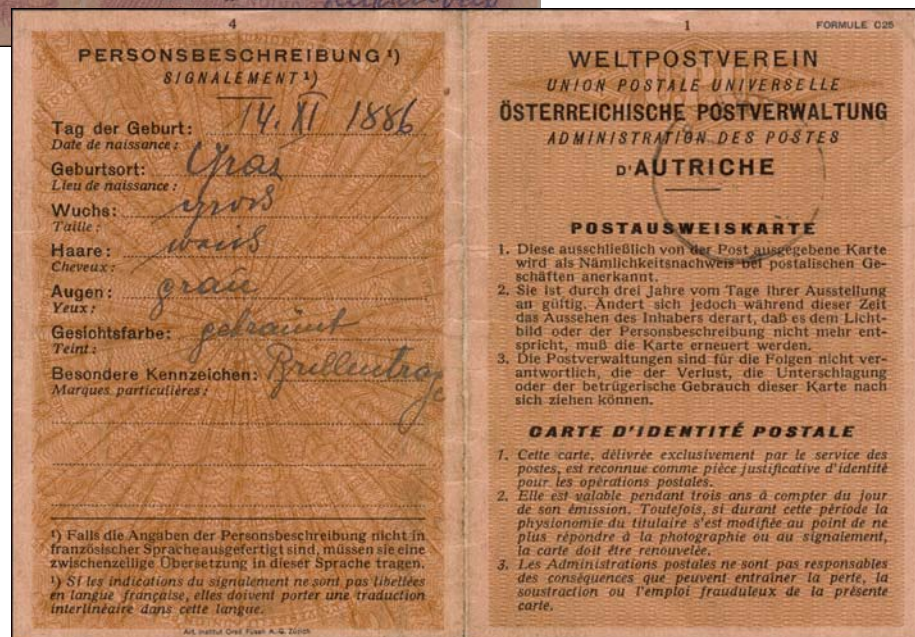 4
PERSONSBESCHREIBUNG ¹)
SIGNALEMENT ¹)
Tag der Geburt: 14. XI 1886
Date de naissance :
Geburtsort: Graz
Lieu de naissance :
Wuchs: groß
Taille :
Haare: weiß
Cheveux :
Augen: grau
Yeux :
Gesichtsfarbe: gebräunt
Teint :
Besondere Kennzeichen: Brillenträger
Marques particulières :
¹) Falls die Angaben der Personsbeschreibung nicht in
französischer Sprache ausgefertigt sind, müssen sie eine
zwischenzeilige Übersetzung in dieser Sprache tragen.
¹) Si les indications du signalement ne sont pas libellées
en langue française, elles doivent porter une traduction
interlinéaire dans cette langue.
Art. Institut Orell Füssli A.-G. Zürich
1
FORMULE C25
WELTPOSTVEREIN
UNION POSTALE UNIVERSELLE
ÖSTERREICHISCHE POSTVERWALTUNG
ADMINISTRATION DES POSTES
D'AUTRICHE
POSTAUSWEISKARTE
1. Diese ausschließlich von der Post ausgegebene Karte
wird als Nämlichkeitsnachweis bei postalischen Ge-
schäften anerkannt.
2. Sie ist durch drei Jahre vom Tage ihrer Ausstellung
an gültig. Ändert sich jedoch während dieser Zeit
das Aussehen des Inhabers derart, daß es dem Licht-
bild oder der Personsbeschreibung nicht mehr ent-
spricht, muß die Karte erneuert werden.
3. Die Postverwaltungen sind für die Folgen nicht ver-
antwortlich, die der Verlust, die Unterschlagung
oder der betrügerische Gebrauch dieser Karte nach
sich ziehen können.
CARTE D'IDENTITÉ POSTALE
1. Cette carte, délivrée exclusivement par le service des
postes, est reconnue comme pièce justificative d'identité
pour les opérations postales.
2. Elle est valable pendant trois ans à compter du jour
de son émission. Toutefois, si durant cette période la
physionomie du titulaire s'est modifiée au point de ne
plus répondre à la photographie ou au signalement,
la carte doit être renouvelée.
3. Les Administrations postales ne sont pas responsables
des conséquences que peuvent entraîner la perte, la
soustraction ou l'emploi frauduleux de la présente
carte.